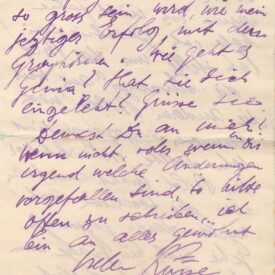 so gross sein wird, wie mein
jetziger Erfolg mit dem
Wie geht es
Genia? Hat sie sich
eingelebt? Grüsse sie
Denkst Du an mich?
Wenn nicht, oder wenn
irgend welche Änderungen
vorgefallen sind, so bitte
offen zu schreiben, ich
bin an alles gewöhnt
Vielen Küsse